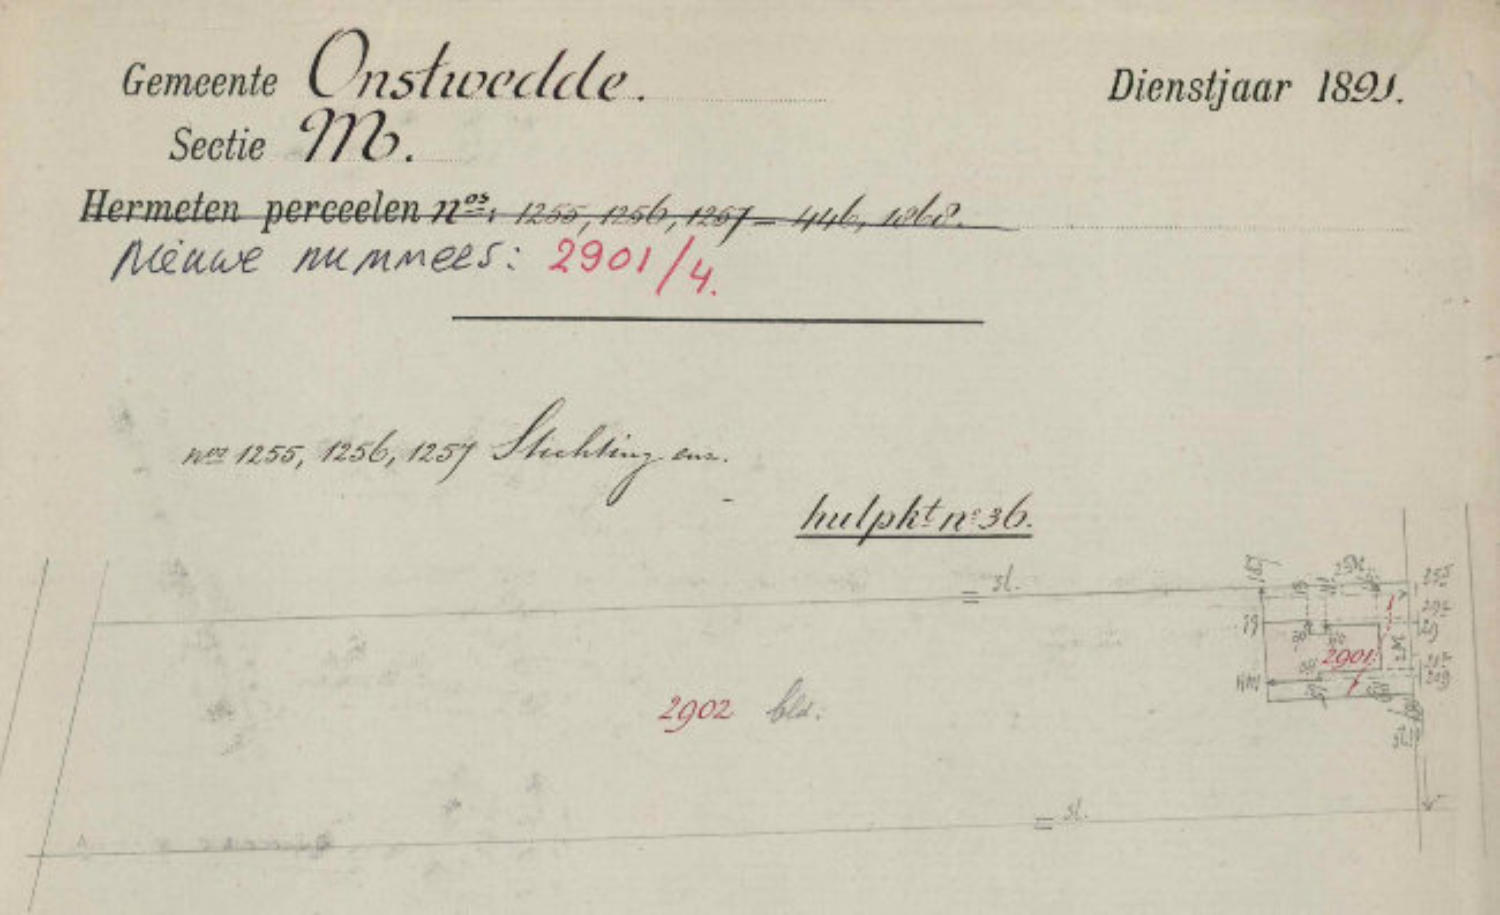 Gemeente Onstwedde.
Dienstjaar 1891.
Sectie M.
Hermeten perceelen nos. 1255, 1256, 1257 – 446, 1868.
Nieuwe nummers: 2901/4.
nos 1255, 1256, 1257 Stichting enz.
hulpkt no 36.
sl.
2901
2902 bld.
sl.